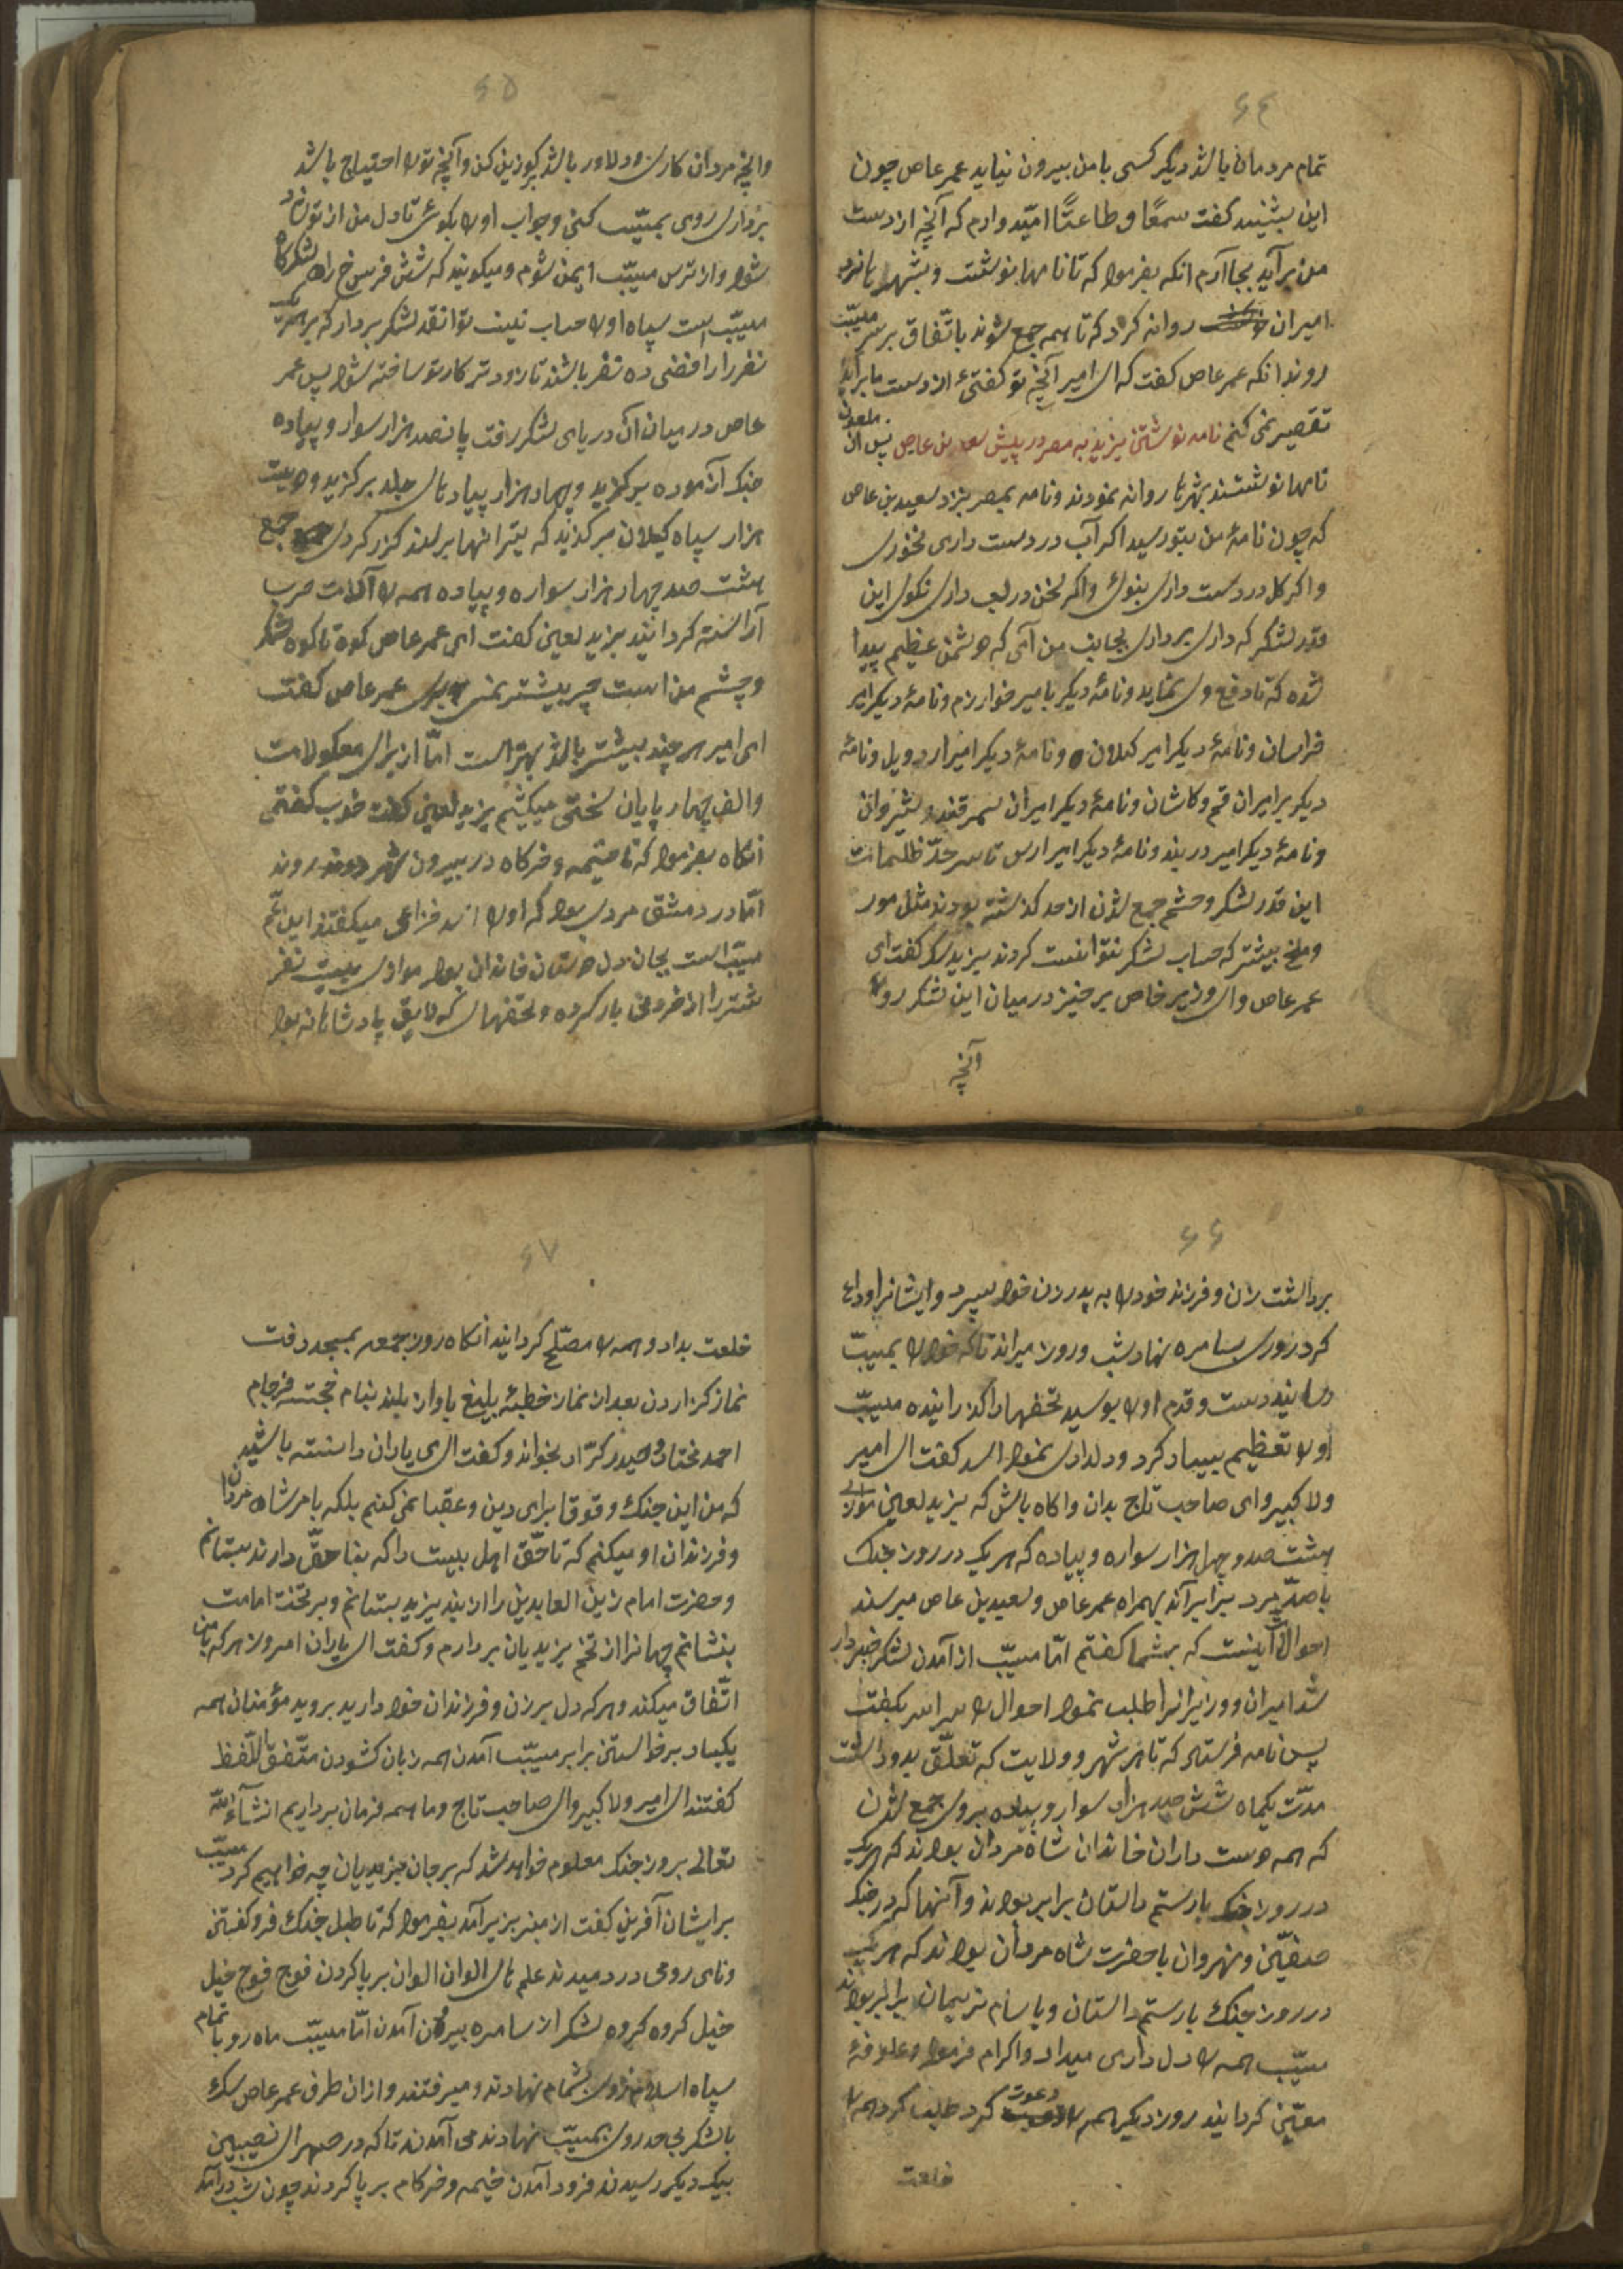 ۶۴
تمام مردمان باشد دیگر کسی با من بیرون نیاید عمر عاص چون
این بشنید کفت سمعًا و طاعتًا امّید وارم که آنچه از دست
من برآید بجا آرم انکه بفرمود که تا نامها بنوشت و بشهرها نزد
امیران روانه کرد که تا همه جمع شوند باتّفاق بر سر مسیّب
روند انکه عمر عاص کفت که ای امیر آنچه تو کفتیٔ از دست ما برآید
تقصیر نمی کنم نامه نوشتن یزید به مصر در پیش سعد بن عاص پس ان ملعون
نامها نوشتند بشهرها روانه نمودند و نامه بمصر بنزد سعید بن عاص
که چون نامهٔ من بتو رسید اکر آب در دست داری نخوری
و اکر کل در دست داری بنوی و اکر سخن در لب داری نکوی این
قدر لشکر که داری برداری بجانب من آی که دشمن عظیم پیدا
شده که تا دفع وی نماید و نامهٔ دیکر بامیر خوارزم و نامهٔ دیکر امیر
خراسان و نامهٔ دیکر امیر کیلان و نامهٔ دیکر امیر اردویل و نامهٔ
دیکر بر امیران قم و کاشان و نامهٔ دیکر امیران سمرقند و شیروان
و نامهٔ دیکر امیر دربند و نامهٔ دیکر امیر ارس تا سر حدّ ظلیمات
این قدر لشکر و حشم جمع شدن از حد کذشته بودند مثل مور
و ملخ بیشتر که حساب لشکر نتوانست کردند یزید کفت ای
عمر عاص و ای وزیر خاص برخیز در میان این لشکر رو
آنچه
۶۵
وانچه مردان کاری و دلاور باشد بکوزین کن و آنچه تورا احتیاج باشد
برداری روی بمسیّب کنی و جواب اورا بکوی تا دل من از تو شاد
شود و از ترس مسیّب ایمن شوم و میکویند که شش فرسخ راه لشکرکاه
مسیّب است سپاه اورا حساب نیست تو انقد لشکر بردار که بر هر یک
نفر را رافضی ده نفر باشند تا زودتر کار تو ساخته شود پس عمر
عاص در میان ان دریای لشکر رفت پانصد هزار سوار و پیاده
جنک آزموده برکزید و چهار هزار پیاده برکزید و دویست
هزار سپاه کیلان برکزید جمع
هشت صد چهار هزار سواره و پیاده همه را آلات حرب
آراسته کردانیدند یزید لعین کفت ای عمر عاص کوه تا کوه لشکر
و چشم من است چر بیشتر نمی بری عمر عاص کفت
ای امیر هر چند بیشتر باشد بهتر است امّا از برای معکولات
و الف چهار پایان سختی میکشیم یزید لعین کفت خوب کفتی
انکاه بفرمود که تا خیمه و خرکاه در بیرون شهر روند
امّا در دمشق مردی بود که اورا اسد خزاعی میکفتند ابن عمّ
مسیّب است بجان دل دوستان خاندان بود موازی بیست نفر
شتر را از خرومی بار کرده و تحفهای که لایق پادشاهانه بود
۶۶
برداشت زن و فرزند خودرا به پدر زن خود سپرد و ایشانرا وداع
کرد روی بسامره نهاد شب و روز میراند تا که خودرا بمسیّب
رسانید دست و قدم اورا بوسید تحفها را کذرانیده مسیّب
اورا تعظیم بسیار کرد و دلداری نمود اسد کفت ای امیر
ولا کبیر و ای صاحب تاج بدان و اکاه باش که یزید لعین موازی
هشت صد و چهل هزار سواره و پیاده که هر یک در روز جنک
با صد مرد برابرآند بهمراه عمر عاص و سعید بن عاص میرسند
احوالات اینست که بشما کفتم امّا مسیّب از آمدن لشکر خبردار
شد امیران و وزیرانرا طلب نمود احوال را سراسر بکفت
پس نامه فرستاد که تا هر شهر و ولایت که تعلّق بدو داشت
مدّت یکماه شش صد هزار سوار و پیاده بروی جمع شدن
که همه دوست داران خاندان شاه مردان بودند که هر یک
در روز جنک با رستم داستان برابر بودند و آنها که در جنک
صفیّن و نهروان با حضرت شاه مردان بودند که هر یک
در روز جنک با رستم داستان و با سام نریمان برابر بودند
مسیّب همه را دل داری میداد و اکرام فرمود و علوفهٔ
معیّن کردانید روز دیکر همه را دعوت کرد طلب کرد همه را
خلعت
۶۷
خلعت بداد و همه را مصلّح کردانید انکاه روز جمعه بمسجد رفت
نماز کزاردن بعد از نماز خطبهٔ بلیغ باواز بلند بنام خجسته فرجام
احمد مختار و حیدر کرّار بخواند و کفت ای یاران دانسته باشید
که من این جنک و قوقا برای دین و عقبا نمی کنم بلکه بامر شاه مردان
و فرزندان او میکنم که تا حقّ اهل بیت را که بنا حقّ دارند بستانم
و حضرت امام زین العابدین را از بند یزید بستانم و بر تخت امامت
بنشانم جهانرا از تخم یزیدیان بردارم و کفت ای یاران امروز هر که بامن
اتّفاق میکند و هر که دل بر زن و فرزندان خود دارید بروید مؤمنان همه
یکبار برخواستن برابر مسیّب آمدن همه زبان کشودن متّفق اللّفظ
کفتند ای امیر ولا کبیر و ای صاحب تاج و ما همه فرمان برداریم انشآءاللّه
تعالی بروز جنک معلوم خواهد شد که بر جان یزیدیان چه خواهیم کرد مسیّب
بر ایشان آفرین کفت از منبر بزیر آمد بفرمود که تا طبل جنک فرو کفتن
و نای رومی در دمیدند علم های الوان الوان بر پا کردن فوج فوج خیل
خیل کروه کروه لشکر از سامره بیرون آمدن امّا مسیّب ماه رو با تمام
سپاه اسلام روی بشام نهادند و میرفتند و از ان طرف عمر عاص سک
با لشکر بی حد روی بمسیّب نهادند می آمدند تا که در صهرای نصیبین
بیک دیکر رسیدند فرود آمدن خیمه و خرکام بر پا کردند چون شب درآمد